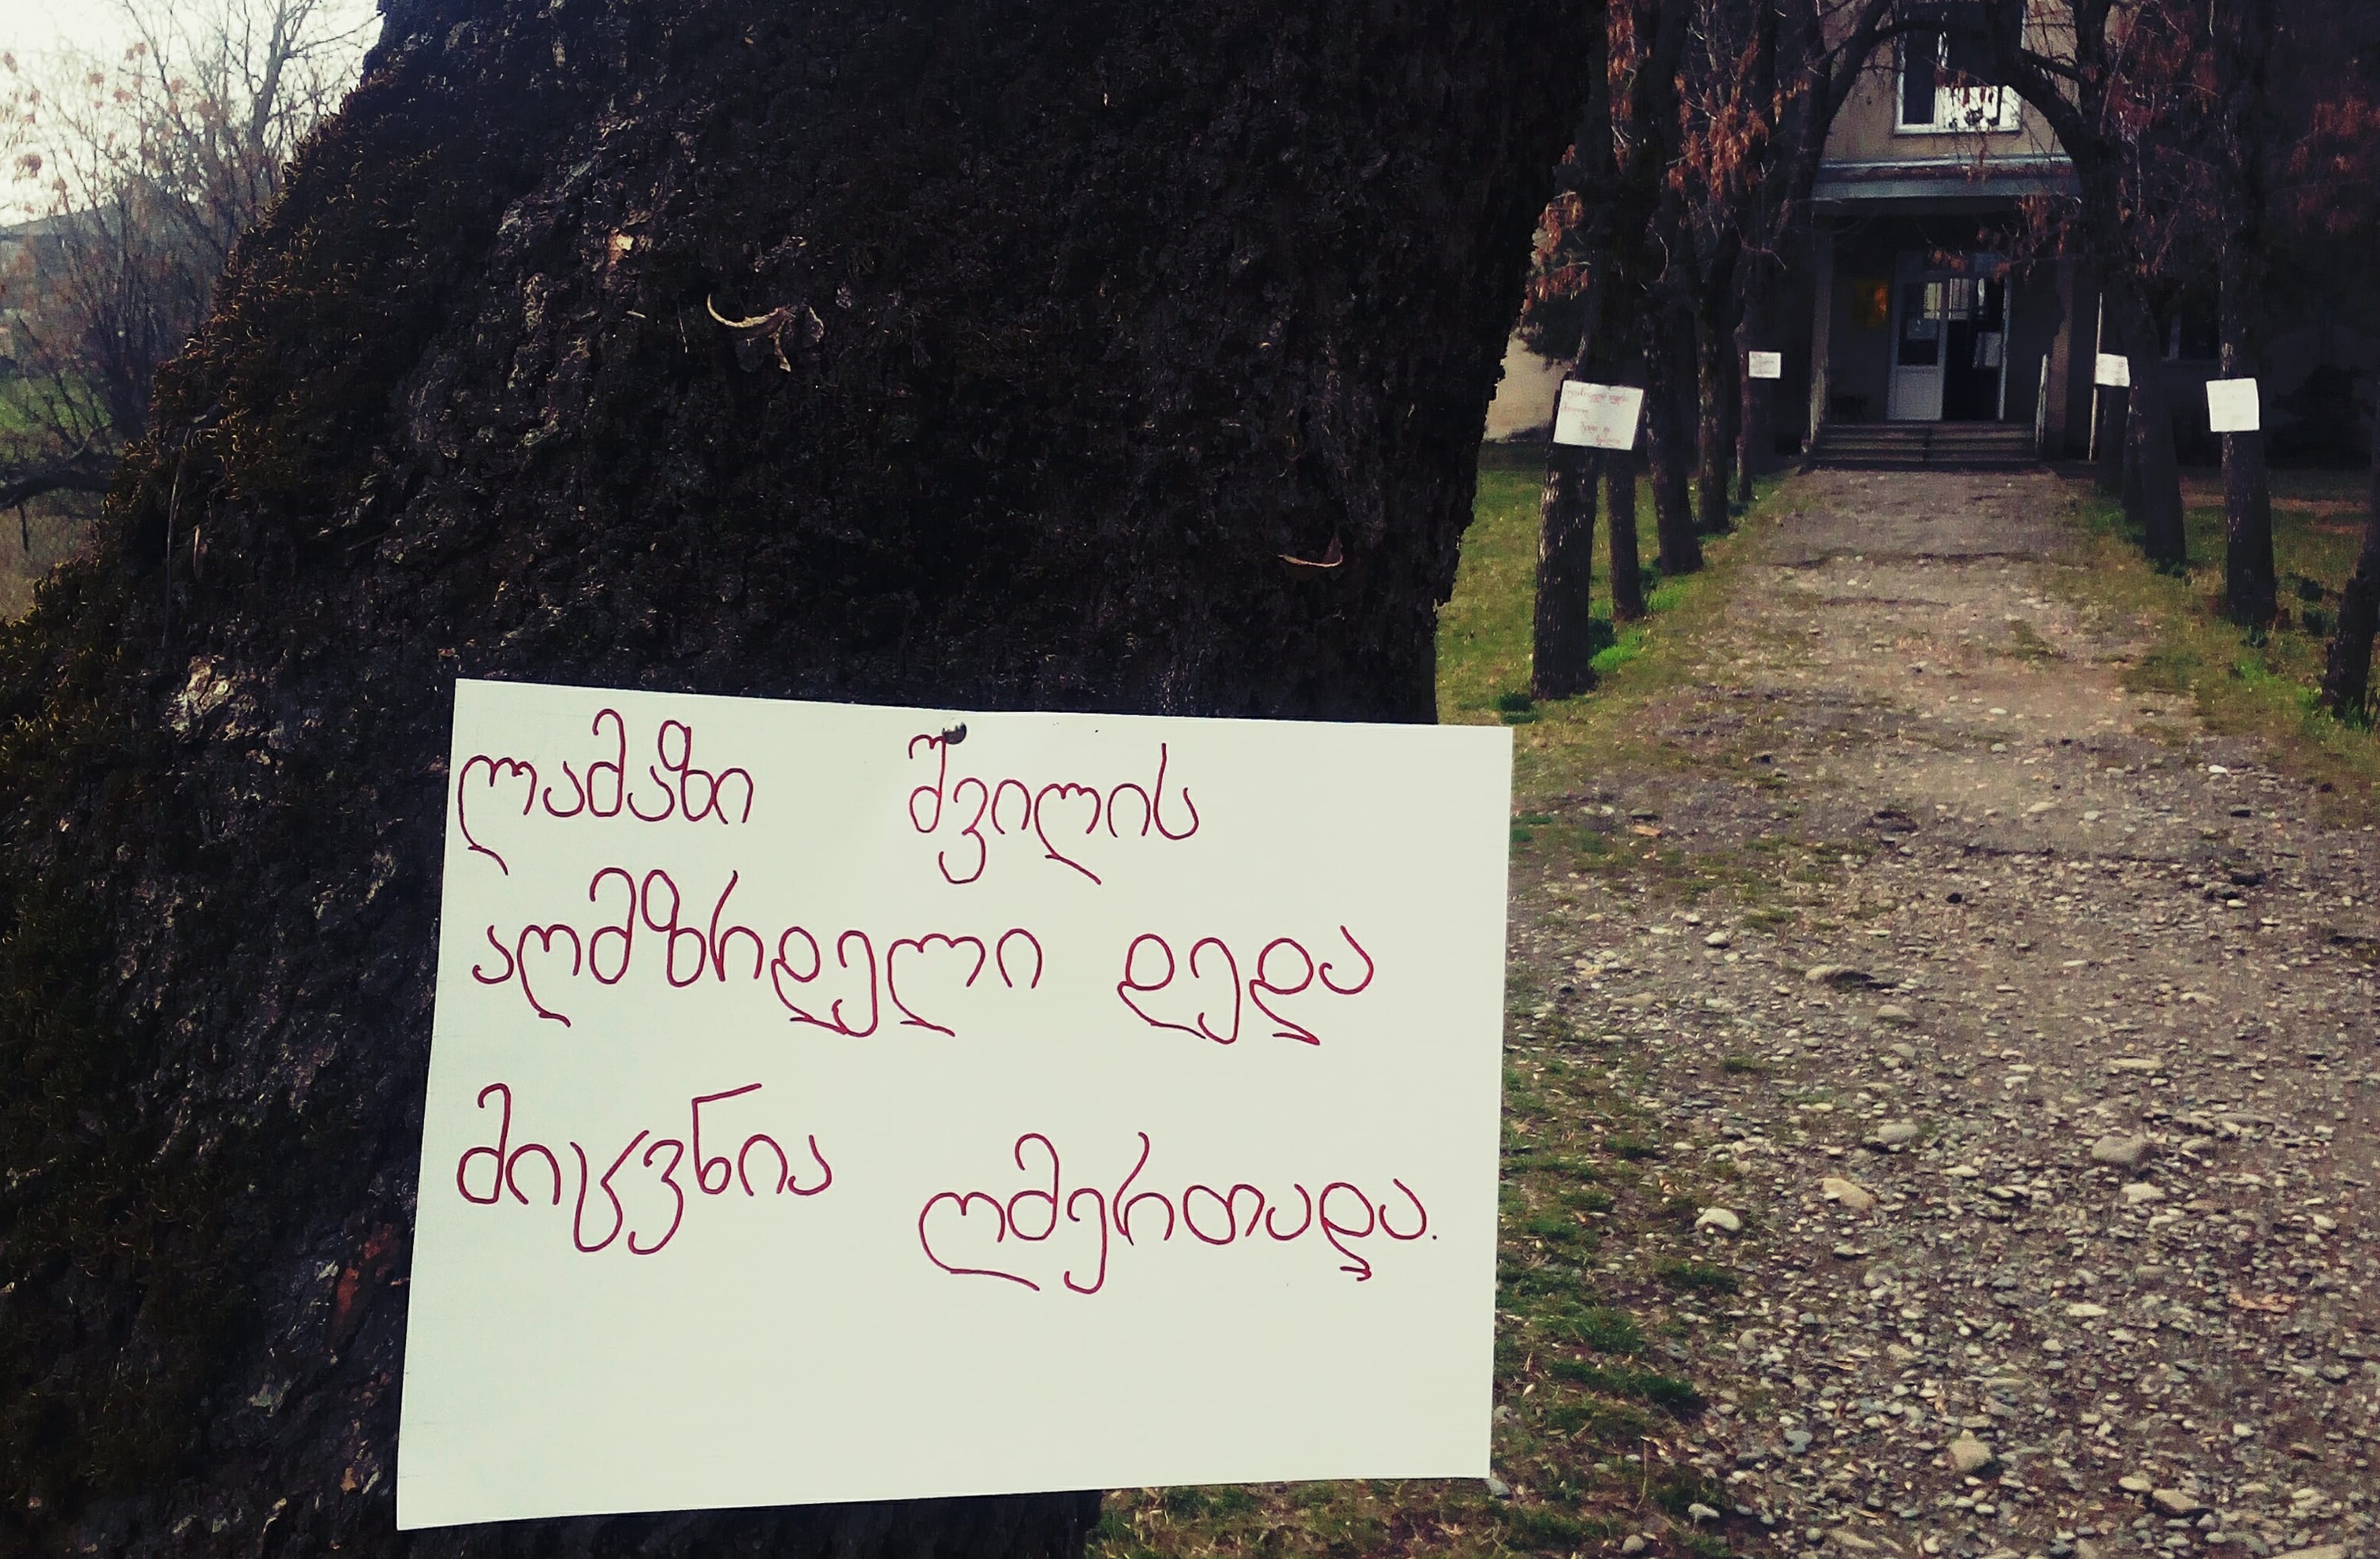 ლამაზი შვილის
აღმზრდელი დედა
მიცვნია ღმერთადა.